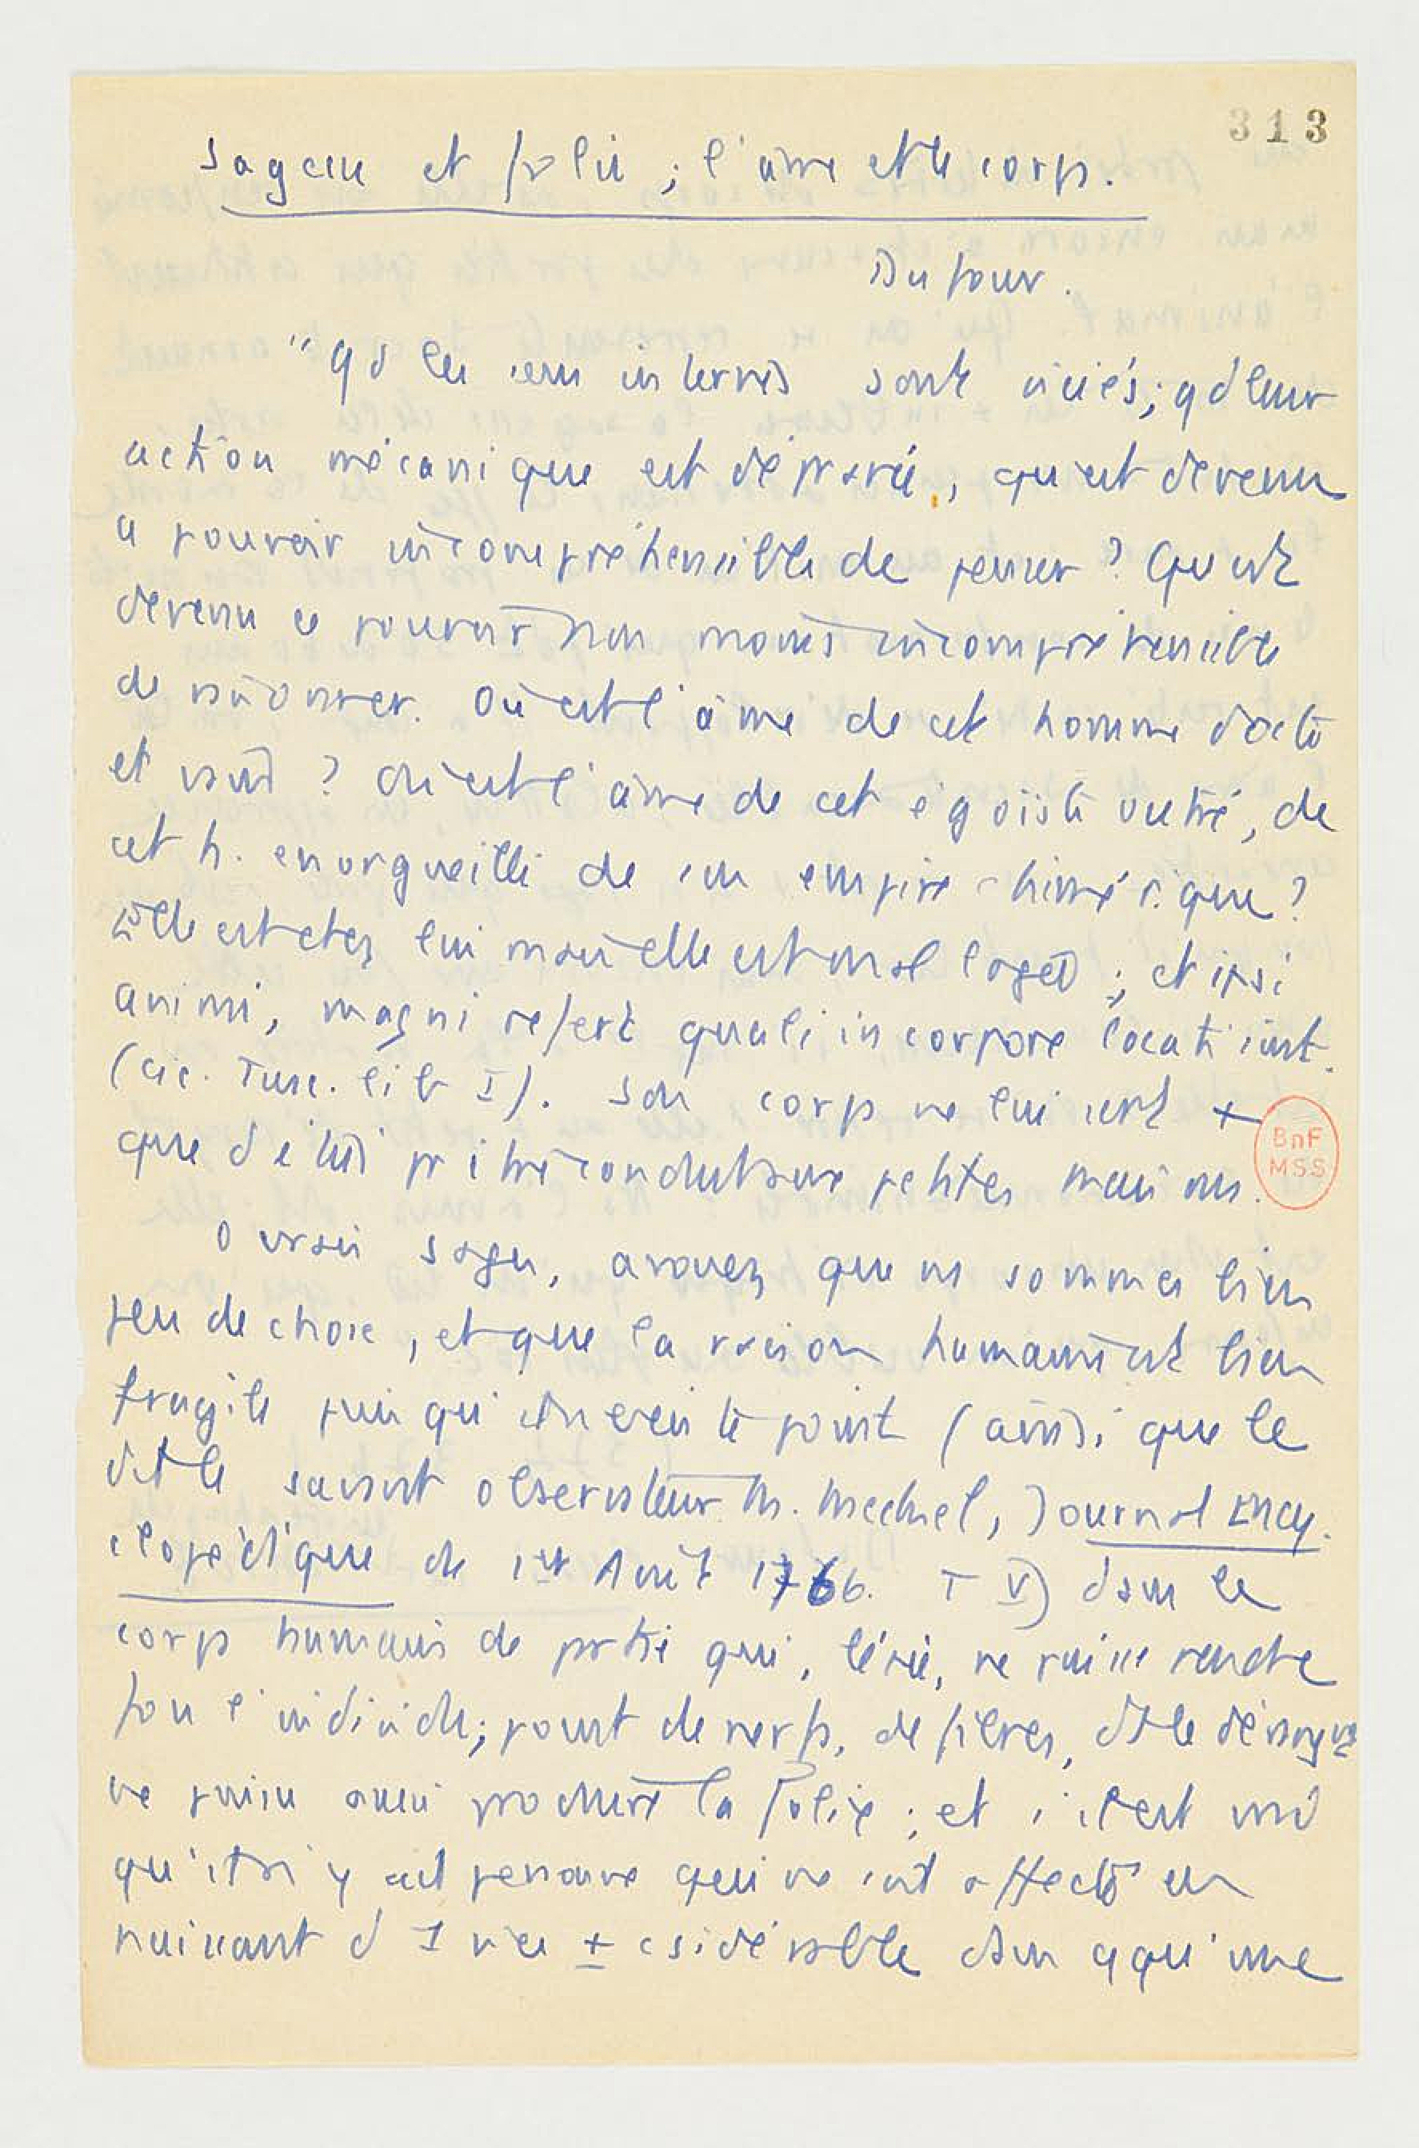 313
Sagesse et folie ; l'âme et le corps.
Dufour.
"qd les sens internes sont viciés ; qd leur
action mécanique est dépravée, qu'est devenu
ce pouvoir incompréhensible de penser ? Qu'est
devenu ce pouvoir non moins incompréhensible
de raisonner. Où est l'âme de cet homme docte
et rusé ? Où est l'âme de cet égoïste outré, de
cet h. enorgueilli de son empire chimérique ?
Elle est chez lui mais elle est mal logée ; et ipsi
animi, magni refert quali in corpore locati sint.
(Cic. Tusc. lib I). Son corps ne lui sert +
que d'étui pr être conduit aux petites maisons.
O vrais sages, avouez que ns sommes bien
peu de chose, et que la raison humaine est bien
fragile puisqu'il n'existe point (ainsi que le
dit le savant observateur M. Meckel, Journal Ency-
clopédique de 1er Août 1766. T V) dans le
corps humain de partie qui, lésée, ne puisse rendre
fou l'individu ; point de nerfs, de fibres, dt le dérangt
ne puisse aussi produire la folie ; et s'il est vrai
qu'il n'y ait personne qui ne soit affecté en
naissant d 1 vice ± csidérable dans qqu'une
BnF
MSS